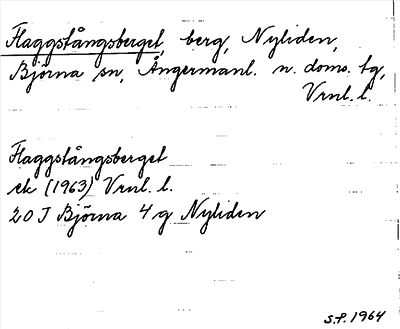 Flaggstångsberget, berg, Nyliden,
Björna sn, Ångermanl. n. doms. tg,
Vrnl. l.
Flaggstångsberget
ek (1963) Vrnl. l.
20 J Björna 4 g Nyliden
S.P. 1964